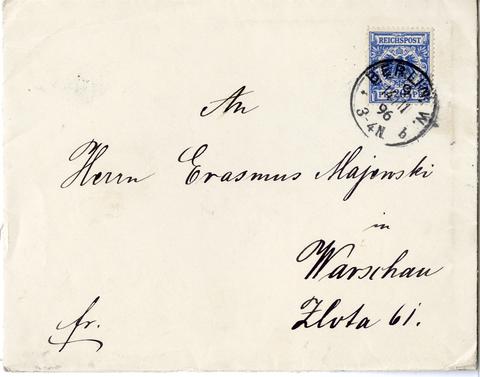 REICHSPOST
BERLIN W.
96
3-4N. b
An
Herrn Erasmus Majewski
in
Warschau
Zlota 61.
fr.